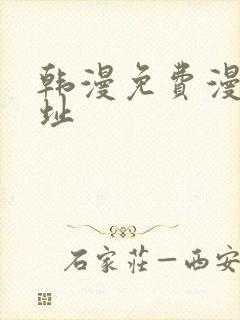 韩漫免費漫
址
石家莊—西安